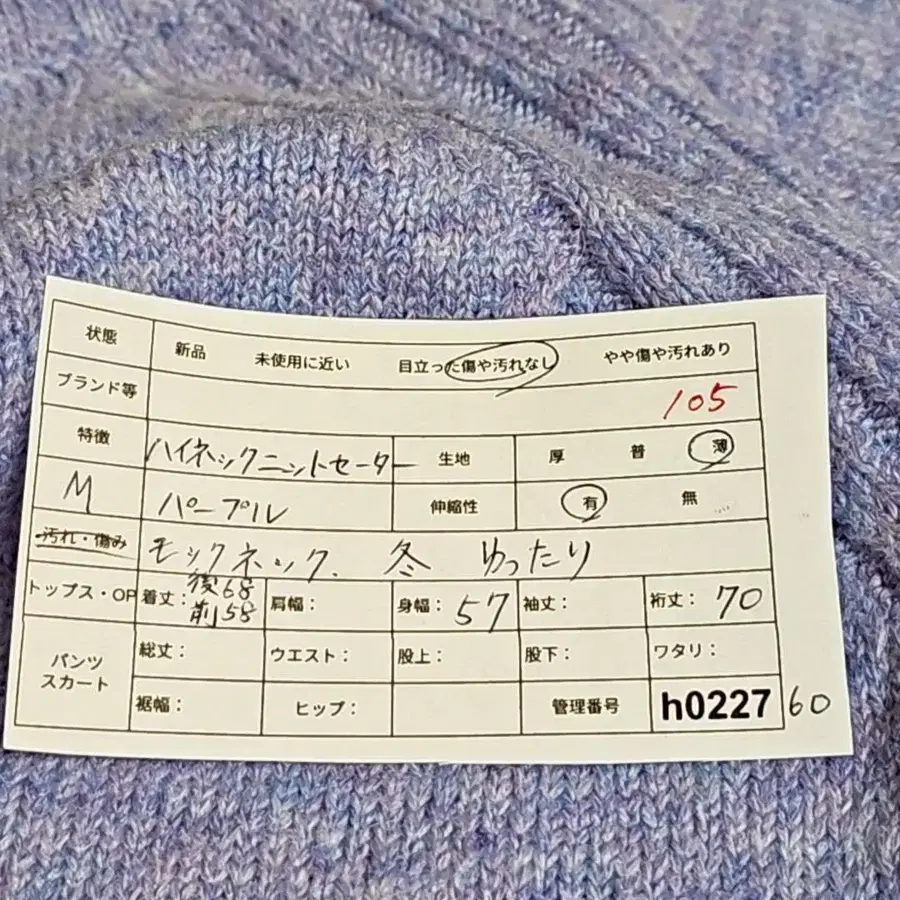 状態 新品 未使用に近い 目立った傷や汚れなし やや傷や汚れあり
ブランド等 105
特徴 ハイネックニットセーター 生地 厚 普 薄
M パープル 伸縮性 有 無
汚れ・傷み モックネック、冬 ゆったり
トップス・OP 着丈: 後68 前58 肩幅: 身幅: 57 袖丈: 裄丈: 70
パンツ スカート 総丈: ウエスト: 股上: 股下: ワタリ:
裾幅: ヒップ: 管理番号 h0227 60